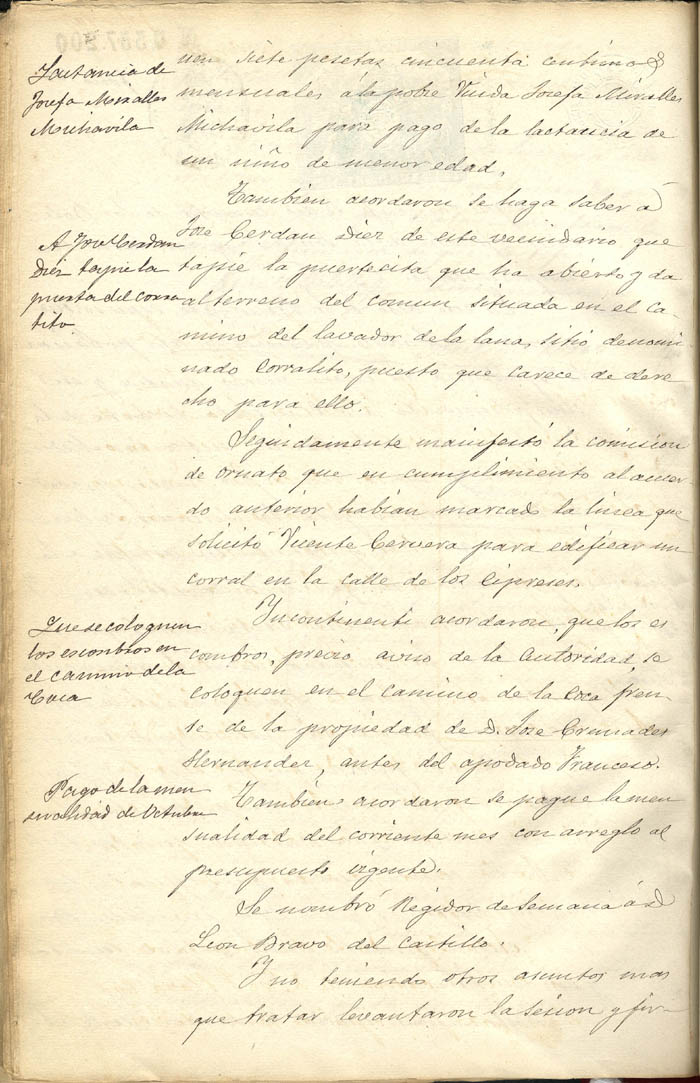 Lactancia de
Josefa Miralles
Michavila
uen siete pesetas cincuenta centimos
mensuales á la pobre Viuda Josefa Miralles
Michavila para pago de la lactancia de
un niño de menor edad.
A José Cerdan
Diez tapie la
puerta del corra
lito.
Tambien acordaron se haga saber á
José Cerdan Diez de este vecindario que
tapie la puertecita que ha abierto y da
al terreno del comun situada en el ca-
mino del lavador de la lana, sitio denomi-
nado Corralito, puesto que carece de dere
cho para ello.
Seguidamente manifestó la comision
de ornato que en cumplimiento al acuer-
do anterior habian marcado la linea que
solicitó Vicente Cervera para edificar un
corral en la calle de los Cipreses.
Que se coloquen
los escombros en
el camino de la
Coca
Yncontinenti acordaron, que los es
combros, previo aviso de la autoridad, se
coloquen en el camino de la Coca fren-
te de la propiedad de D. José Cremades
Hernandez, antes del apodado Frances.
Pago de la men
sualidad de Octubre
Tambien acordaron se pague la men
sualidad del corriente mes con arreglo al
presupuesto vigente.
Se nombró Regidor de Semana á D.
Leon Bravo del Castillo.
Y no teniendo otros asuntos mas
que tratar levantaron la sesion y fir-